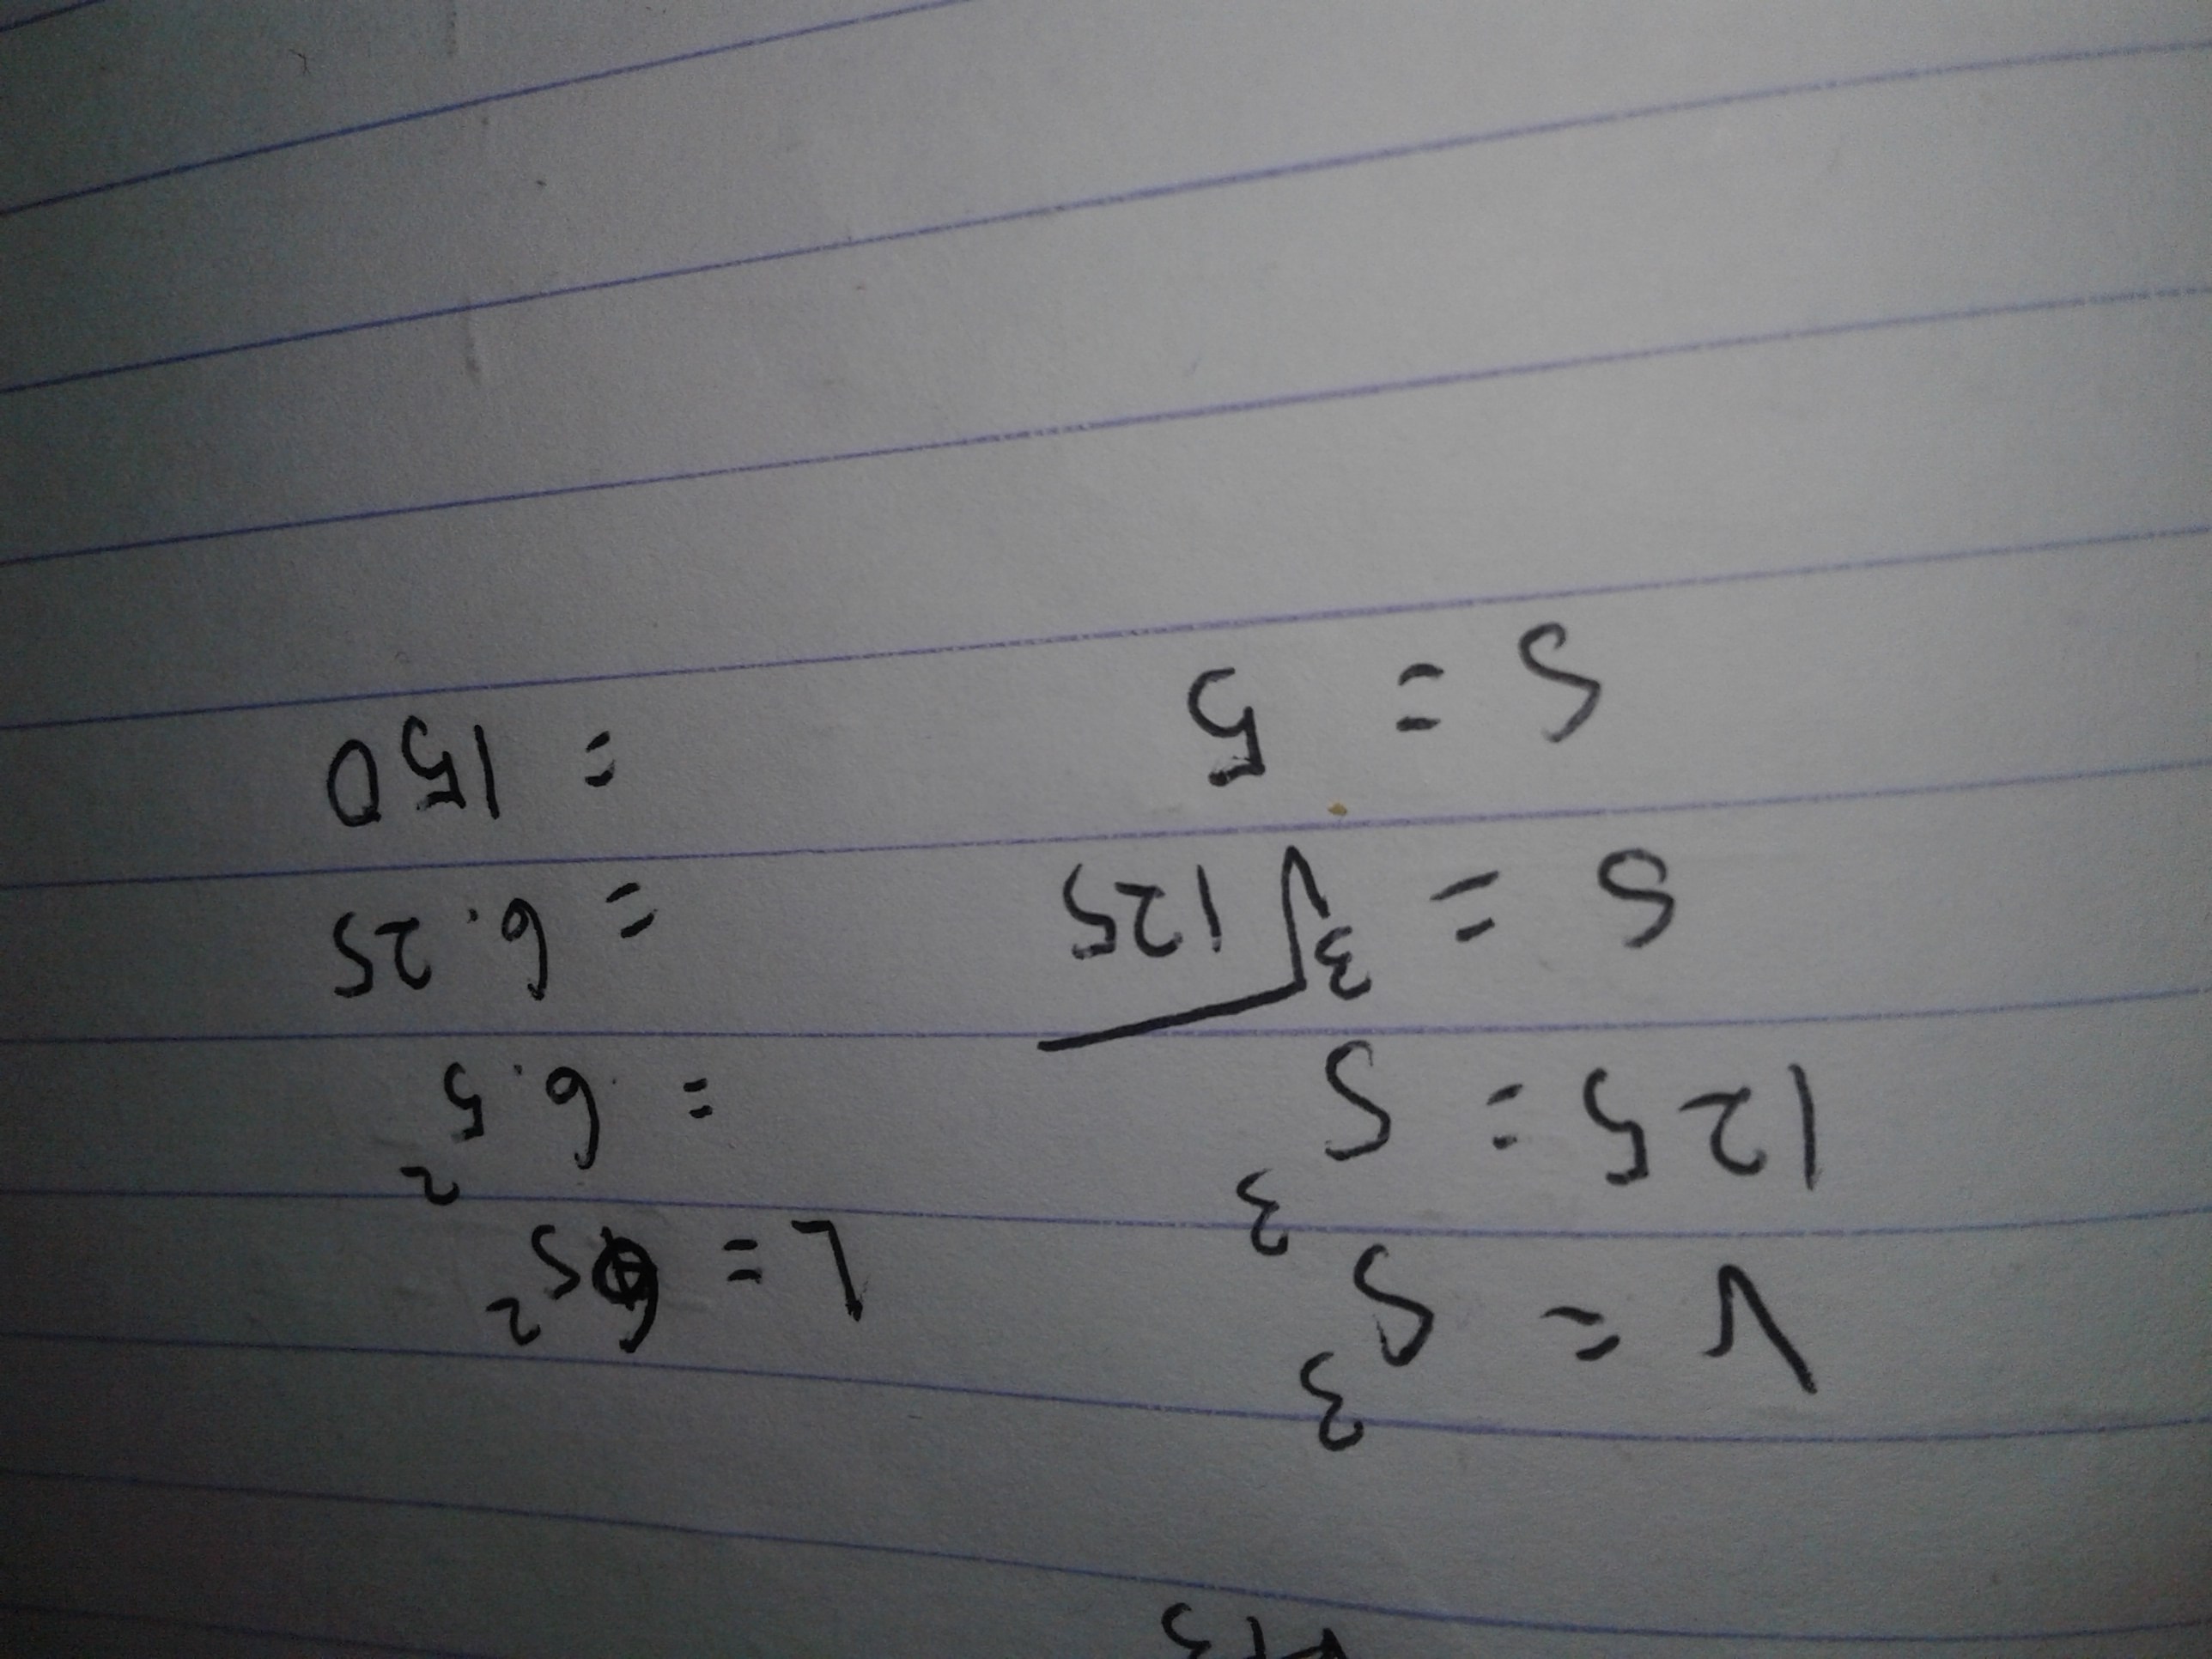 V = S³
125 = S³
S = ∛125
S = 5
L = 6S²
= 6·5²
= 6·25
= 150